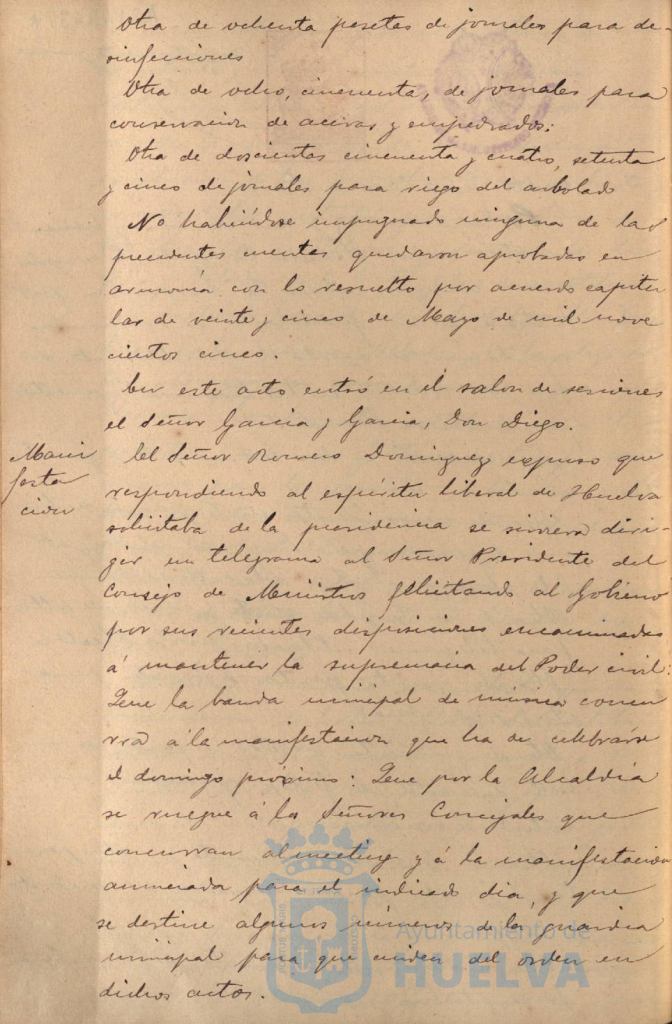 Otra de ochenta pesetas de jornales para de-
sinfecciones
Otra de ocho, cincuenta, de jornales para
conservacion de aceras y empedrados:
Otra de doscientas cincuenta y cuatro, setenta
y cinco de jornales para riego del arbolado
No habiéndose impugnado ninguna de las
precedentes cuentas quedaron aprobadas en
armonía con lo resuelto por acuerdo capitu
lar de veinte y cinco de Mayo de mil nove
cientos cinco.
En este acto entró en el salon de sesiones
el Señor Garcia y Garcia, Don Diego.
Mani
festa
cion
El Señor Romero Dominguez expuso que
respondiendo al espíritu liberal de Huelva
solicitaba de la presidencia se sirviera diri-
gir un telegrama al Señor Presidente del
Consejo de Ministros felicitando al Gobierno
por sus recientes disposiciones encaminadas
á mantener la supremacia del Poder civil:
Que la banda municipal de música concu
rra á la manifestacion que ha de celebrarse
el domingo próximo: Que por la Alcaldía
se ruegue á los Señores Concejales que
concurran al meeting y á la manifestacion
anunciada para el indicado dia, y que
se destine algunos números de la guardia
municipal para que cuiden del orden en
dichos actos.
Ayuntamiento de
HUELVA